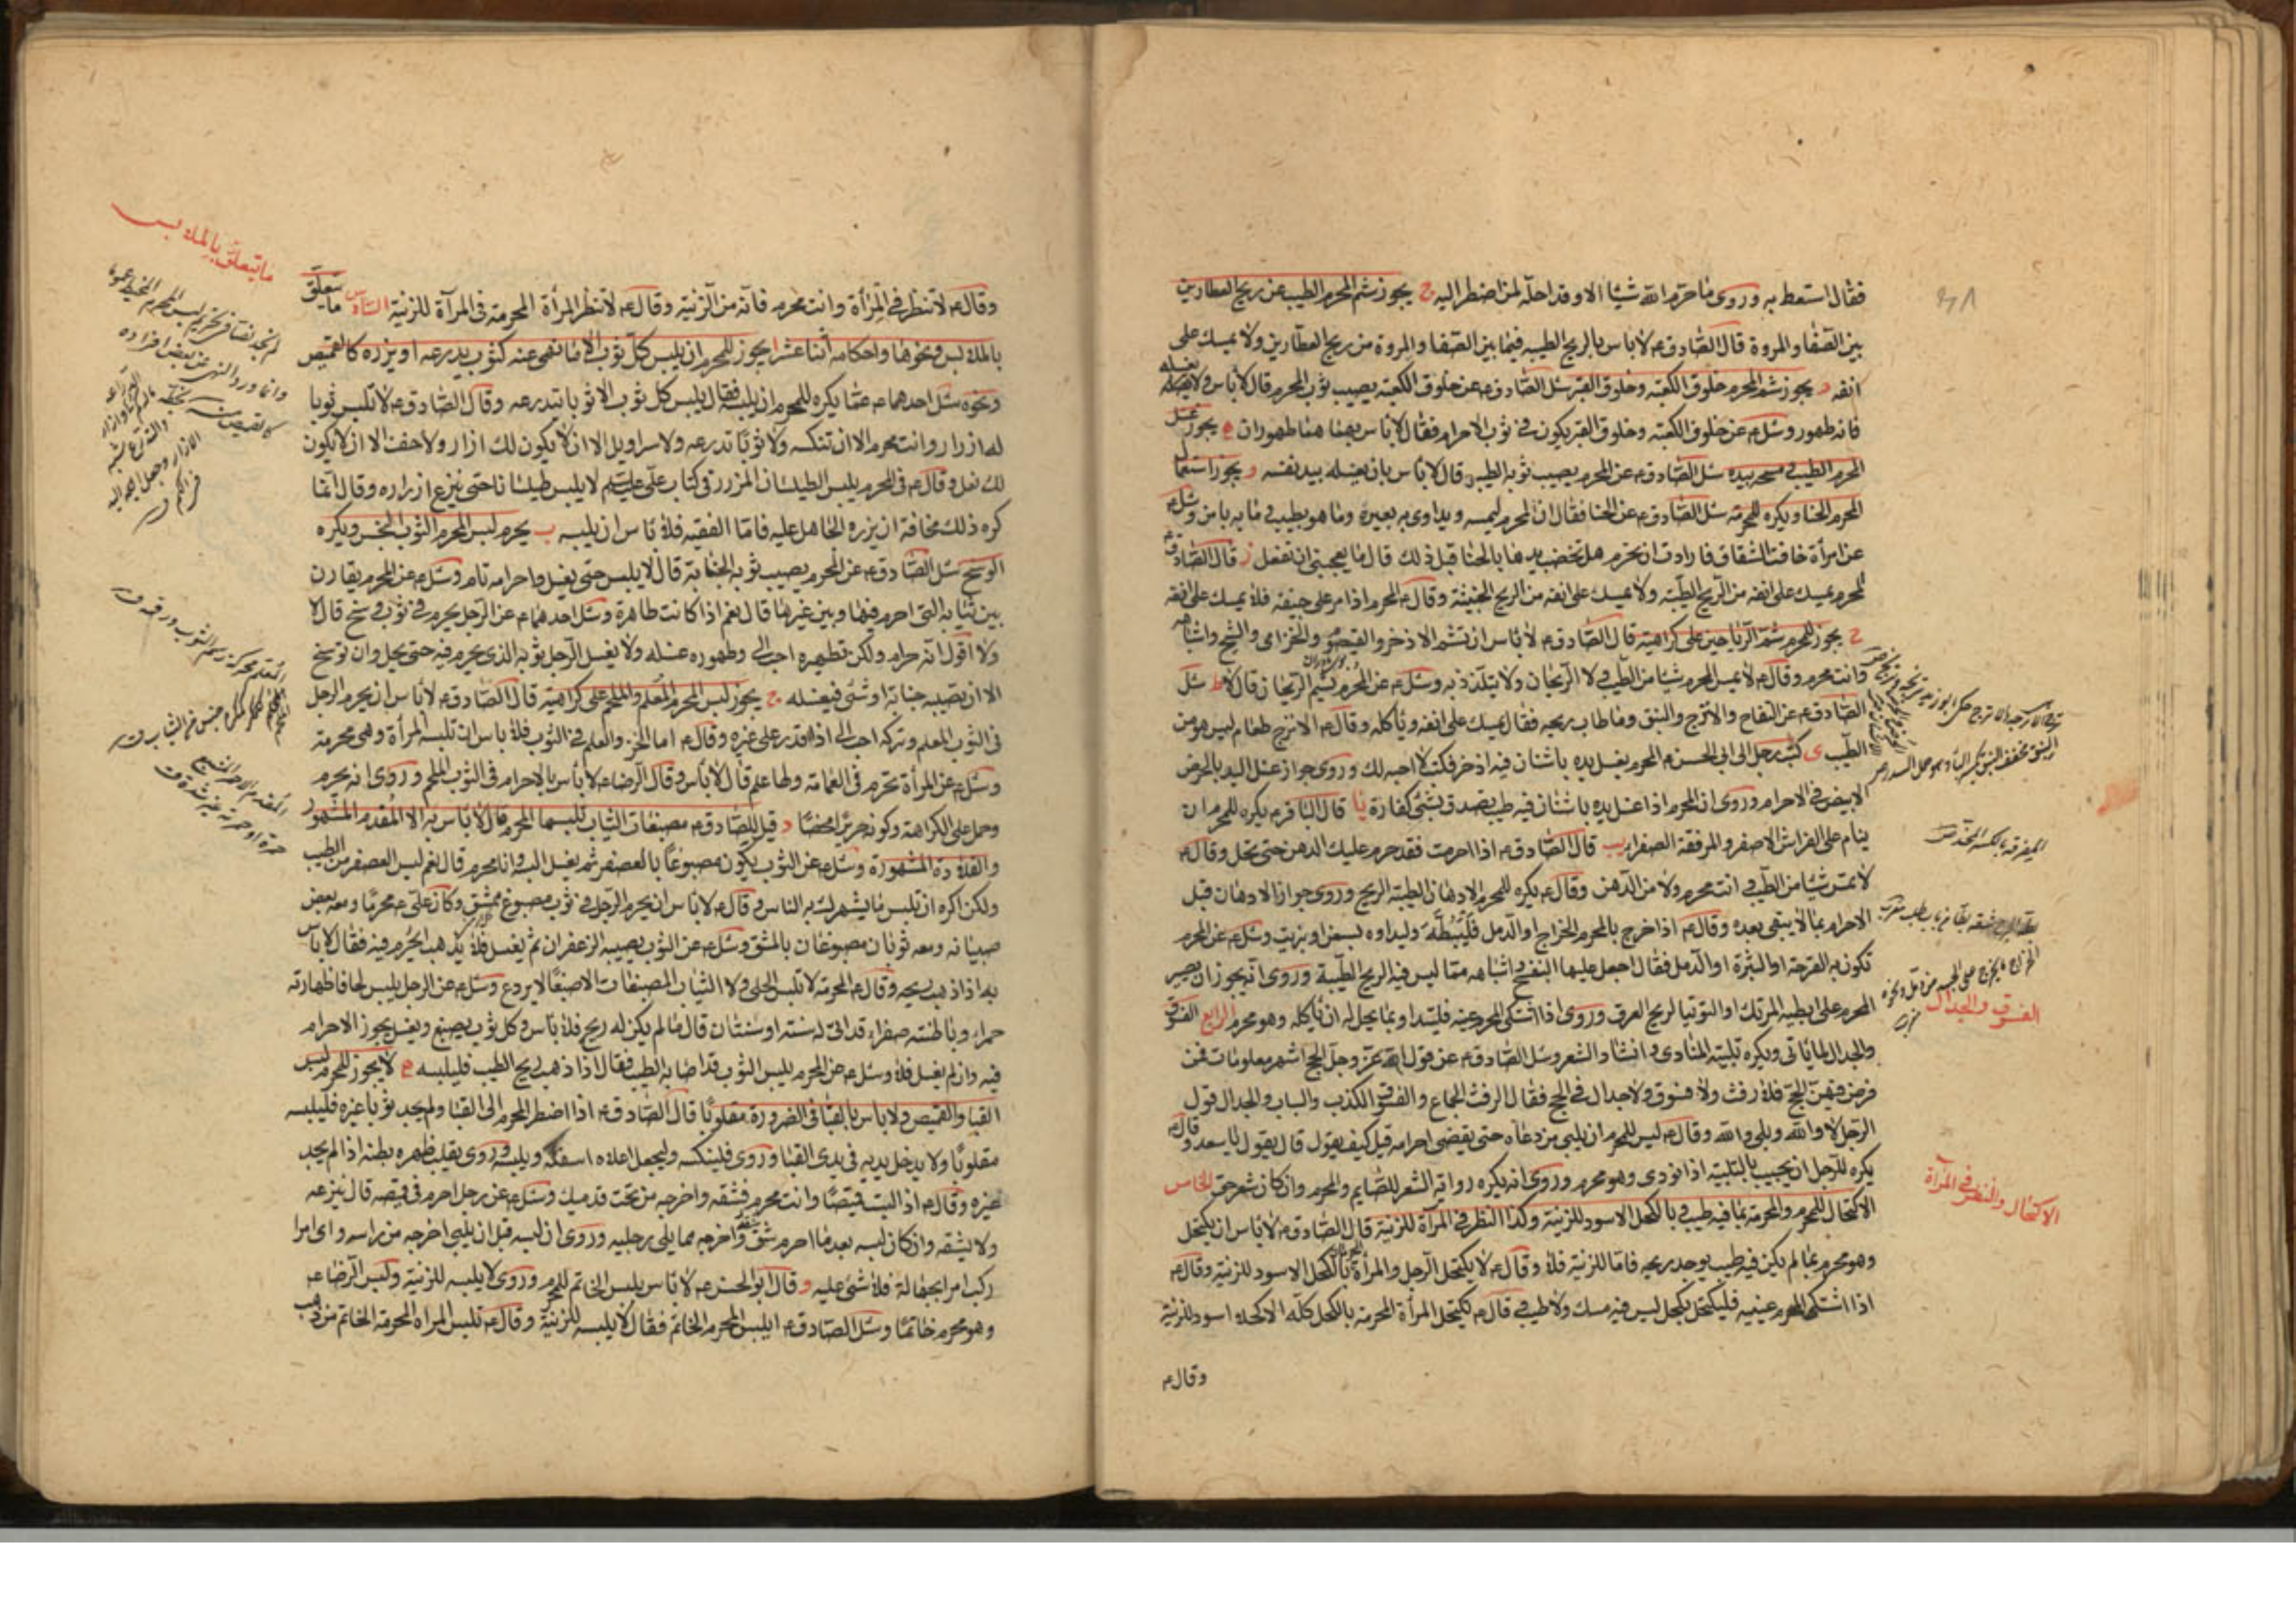 فقال استعط به وروى ما حرّم الله شيئا الا وقد احلّه لمن اضطر اليه ج يجوز شم المحرم الطيب عن ريح العطارين
بين الصّفا والمروة قال الصّادق ع لا باس بالريح الطيبه فيما بين الصّفا والمروة من ريح العطّارين ولا يمسك على
انفه د يجوز شم المحرم خلوق الكعبة وخلوق القبر سئل الصّادق ع عن خلوق الكعبة يصيب ثوب المحرم قال لا باس ولا يغسله
فانه طهور وسئل ع عن خلوق الكعبة وخلوق القبر يكون في ثوب الاحرام فقال لا باس بهما هما طهوران ه يجوز غسل
المحرم الطيب ومسحه بيده سئل الصّادق ع عن المحرم يصيب ثوبه الطيب قال لا باس بان يغسله بيد نفسه و يجوز استعمال
المحرم الحنا ويكره للمحرمة سئل الصّادق ع عن الحنا فقال ان المحرم ليمسه ويداوى به بعيره وما هو بطيب وما به باس وسئل ع
عن امرأة خافت الشقاق فارادت ان تحرم هل تخضب يدها بالحنا قبل ذلك قال ما يعجبنى ان تفعل ز قال الصّادق ع
المحرم يمسك على انفه من الريح الطيّبة ولا يمسك على انفه من الريح الخبيثة وقال ع المحرم اذا مر على جيفة فلا يمسك على انفه
ح يجوز للمحرم شم الرياحين على كراهية قال الصّادق ع لا باس ان تشم الاذخر والقيصوم والخزامى والشيح واشباهه
وانت محرم وقال ع لا يمس المحرم شيئا من الطّيب ولا الريحان ولا يتلذذ به وسئل ع عن المحرم يشم الريحان قال لا ط سئل
الصّادق ع عن التفاح والاترج والنبق وما طاب ريحه فقال يمسك على انفه وياكله وقال ع الاترج طعام ليس هو من
الطّيب ى كتب رجل الى ابى الحسن ع المحرم يغسل يده باشنان فيه اذخر فكتب لا احبه لك وروى جواز غسل اليد بالحرض
الابيض في الاحرام وروى ان المحرم اذا غسل يده باشنان فيه طيب يصدق بشئ كفارة يا قال الباقر ع يكره للمحرم ان
ينام على الفراش الاصفر والمرفقة الصفراء يب قال الصّادق ع اذا احرمت فقد حرم عليك الدهن حتى تحل وقال ع
لا تمس شيئا من الطّيب وانت محرم ولا من الدّهن وقال ع يكره للمحرم الادهان الطيبة الريح وروى جواز الادهان قبل
الاحرام بما لا يبقى بعده وقال ع اذا خرج بالمحرم الخراج او الدمل فليبطّه وليداوه بسمن او بزيت وسئل ع عن المحرم
تكون به القرحة او البثرة او الدمل فقال اجعل عليها البنفسج واشباهه مما ليس فيه الريح الطيّبة وروى انه يجوز ان يصير
المحرم على ابطيه المرتك او التوتيا لريح العرق وروى اذا اشتكى المحرم عينه فليتداو بما يحل له ان ياكله وهو محرم الرابع الفسوق
والجدال لما ياتى ويكره تلبية المنادى وانشاد الشعر وسئل الصّادق ع عن قول الله عز وجل الحج اشهر معلومات فمن
فرض فيهن الحج فلا رفث ولا فسوق ولا جدال في الحج فقال الرفث الجماع والفسوق الكذب والسباب والجدال قول
الرّجل لا والله وبلى والله وقال ع ليس للمحرم ان يلبى من دعاه حتى يقضى احرامه قيل كيف يقول قال يقول يا سعد وقال ع
يكره للرجل ان يجيب بالتلبية اذا نودى وهو محرم وروى انه يكره رواية الشعر للصّايم والمحرم وان كان شعر حق الخامس
الاكتحال للمحرم والمحرمة بما فيه طيب وبالكحل الاسود للزينة وكذا النظر في المرآة للزينة قال الصّادق ع لا باس ان يكتحل
وهو محرم بما لم يكن فيه طيب يوجد ريحه فاما للزينة فلا وقال ع لا يكتحل الرجل والمرأة المحرمان بالكحل الاسود للزينة وقال ع
اذا اشتكى المحرم عينيه فليكتحل بكحل ليس فيه مسك ولا طيب وقال ع تكتحل المرأة المحرمة بالكحل كلّه الا كحلا اسود للزينة
وقال ع
الفسوق والجدال
الاكتحال والنظر في المرآة
وقال ع لا تنظر في المرأة وانت محرم فانه من الزينة وقال ع لا تنظر المرأة المحرمة في المرآة للزينة السّادس ما يتعلّق
بالملابس ونحوها واحكامه أثنا عشر ا يجوز للمحرم ان يلبس كلّ ثوب الا ما نهى عنه كثوب يدرعه او يزره كالقميص
ونحوه سئل احدهما ع عما يكره للمحرم ان يلبسه فقال يلبس كل ثوب الا ثوبا تتدرعه وقال الصّادق ع لا تلبس ثوبا
له ازرار وانت محرم الا ان تنكسه ولا ثوبًا تدرعه ولا سراويل الا ان لا يكون لك ازار ولا خف الا ان لا يكون
لك نعل وقال ع في المحرم يلبس الطيلسان المزرر في كتاب علىّ عليه السّلم لا يلبس طيلسانا حتى ينزع ازراره وقال انما
كره ذلك مخافة ان يزره الجاهل عليه فاما الفقيه فلا باس ان يلبسه ب يحرم لبس المحرم الثوب النجس ويكره
الوسخ سئل الصّادق ع عن المحرم يصيب ثوبه الجنابة قال لا يلبس حتى يغسل واحرامه تام وسئل ع عن المحرم يقارن
بين ثيابه التى احرم فيها وبين غيرها قال نعم اذا كانت طاهرة وسئل احدهما ع عن الرّجل يحرم في ثوب وسخ قال لا
ولا اقول انه حرام ولكن تطهيره احب الى وطهوره غسله ولا يغسل الرّجل ثوبه الذى يحرم فيه حتى يحل وان توسخ
الا ان تصيبه جنابة او شئ فيغسله ج يجوز لبس المحرم المُعلم والملحم على كراهية قال الصّادق ع لا باس ان يحرم الرجل
في الثوب المعلم وتركه احب الى اذا قدر على غيره وقال ع اما الخز والعلم في الثوب فلا باس ان تلبسه المرأة وهى محرمة
وسئل ع عن المرأة تحرم في العمامة ولها علم قال لا باس وقال الرضا ع لا باس بالاحرام في الثوب الملحم وروى انه يحرم
وحمل على الكراهة وكونه حريرًا محضًا د قيل للصّادق ع مصبغات الثياب تلبسها المحرم قال لا باس به الا المُقدم المشهور
والقلادة المشهورة وسئل ع عن الثوب يكون مصبوغًا بالعصفر ثم يغسل البسه وانا محرم قال نعم ليس العصفر من الطيب
ولكن اكره ان تلبس ما يشهرك به الناس وقال ع لا باس ان يحرم الرّجل في ثوب مصبوغ ممشق وكان علىّ ع محرمًا ومعه بعض
صبيانه ومعه ثوبان مصبوغان بالمشق وسئل ع عن الثوب يصيبه الزعفران ثم يغسل فلا يذهب ايحرم فيه فقال لا باس
به اذا ذهب ريحه وقال ع المحرمة لا تلبس الحلى ولا الثياب المصبغات الا صبغًا لا يردع وسئل ع عن الرجل يلبس لحافا ظهارته
حمراء وباطنته صفراء قد اتى له سنة او سنتان قال ما لم يكن له ريح فلا باس وكل ثوب يصبغ ويغسل يجوز الاحرام
فيه وان لم يغسل فلا وسئل ع عن المحرم يلبس الثوب قد اصابه الطيب فقال اذا ذهب ريح الطيب فليلبسه ه لا يجوز للمحرم لبس
القبا والقميص ولا باس بالقبا في الضرورة مقلوبًا قال الصّادق ع اذا اضطر المحرم الى القبا ولم يجد ثوبا غيره فليلبسه
مقلوبًا ولا يدخل يديه في يدى القبا وروى فلينكسه وليجعل اعلاه اسفله ويلبسه وروى يقلب ظهره بطنه اذا لم يجد
غيره وقال ع اذ البست قميصًا وانت محرم فشقه واخرجه من تحت قدميك وسئل ع عن رجل احرم في قميصه قال ينزعه
ولا يشقه وان كان لبسه بعد ما احرم شقه واخرجه مما يلى رجليه وروى ان لبسه قبل ان يلبى اخرجه من راسه واى امرا
ركب امرا بجهالة فلا شئ عليه و قال ابو الحسن ع لا باس بلبس الخاتم للمحرم وروى لا يلبسه للزينة ولبس الرّضا ع
وهو محرم خاتمًا وسئل الصّادق ع ايلبس المحرم الخاتم فقال لا يلبسه للزينة وقال ع تلبس المراه المحرمة الخاتم من ذهب
ما يتعلق بالملابس